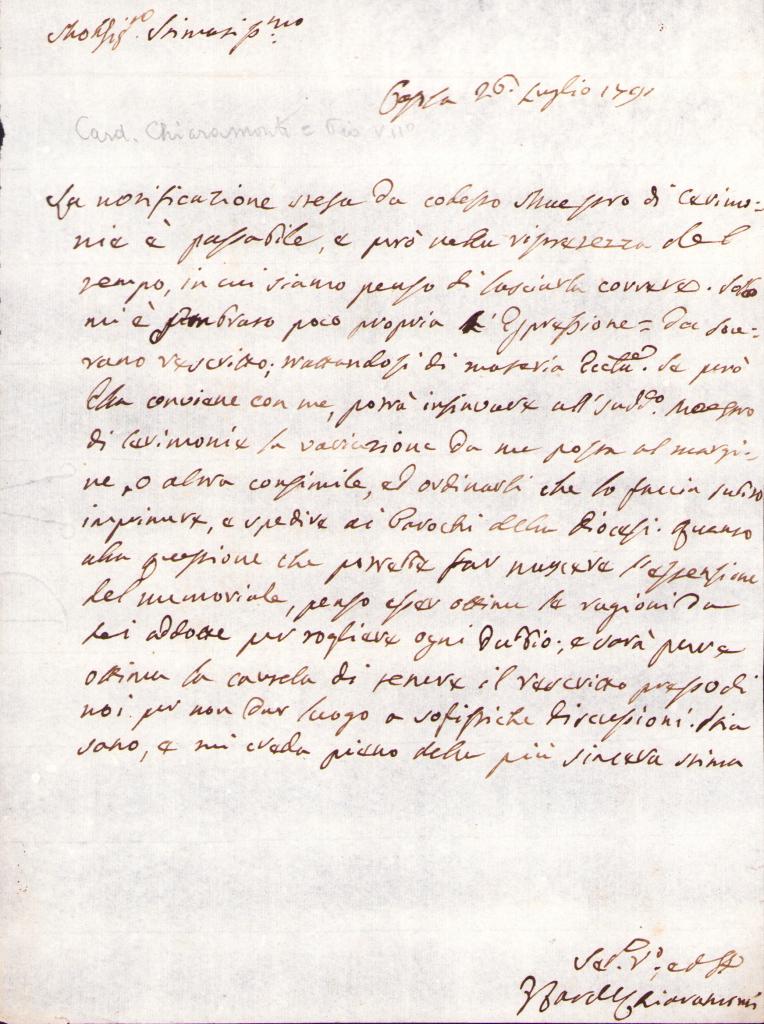 Monsig.ro Stimatis.mo
26. Luglio 1791
Card. Chiaramonti = Pio VII°
La notificazione stesa da codesto Maestro di Cerimo=
nie è passabile, e però nella ristrettezza del
tempo, in cui siamo penso di lasciarla correre. Solo
mi è sembrato poco propria l'Espressione = da Sov-
rano rescritto; trattandosi di materia Eccl.ca. Se però
Ella conviene con me, potrà insinuare all'sudd.o Maestro
di Cerimonie la variazione da me posta al margi-
ne, o altra consimile, ed ordinarli che lo faccia subito
imprimere, e spedire ai Parochi della Diocesi. Quanto
alla questione che potrebbe far nascere l'estensione
del memoriale, penso esser ottime le ragioni da
Lei addotte per togliere ogni dubbio; e sarà pure
ottima la cautela di tenere il rescritto presso di
noi per non dar luogo a sofistiche discussioni. Stia
sano, e mi creda pieno della più sincera stima
Chiaramonti